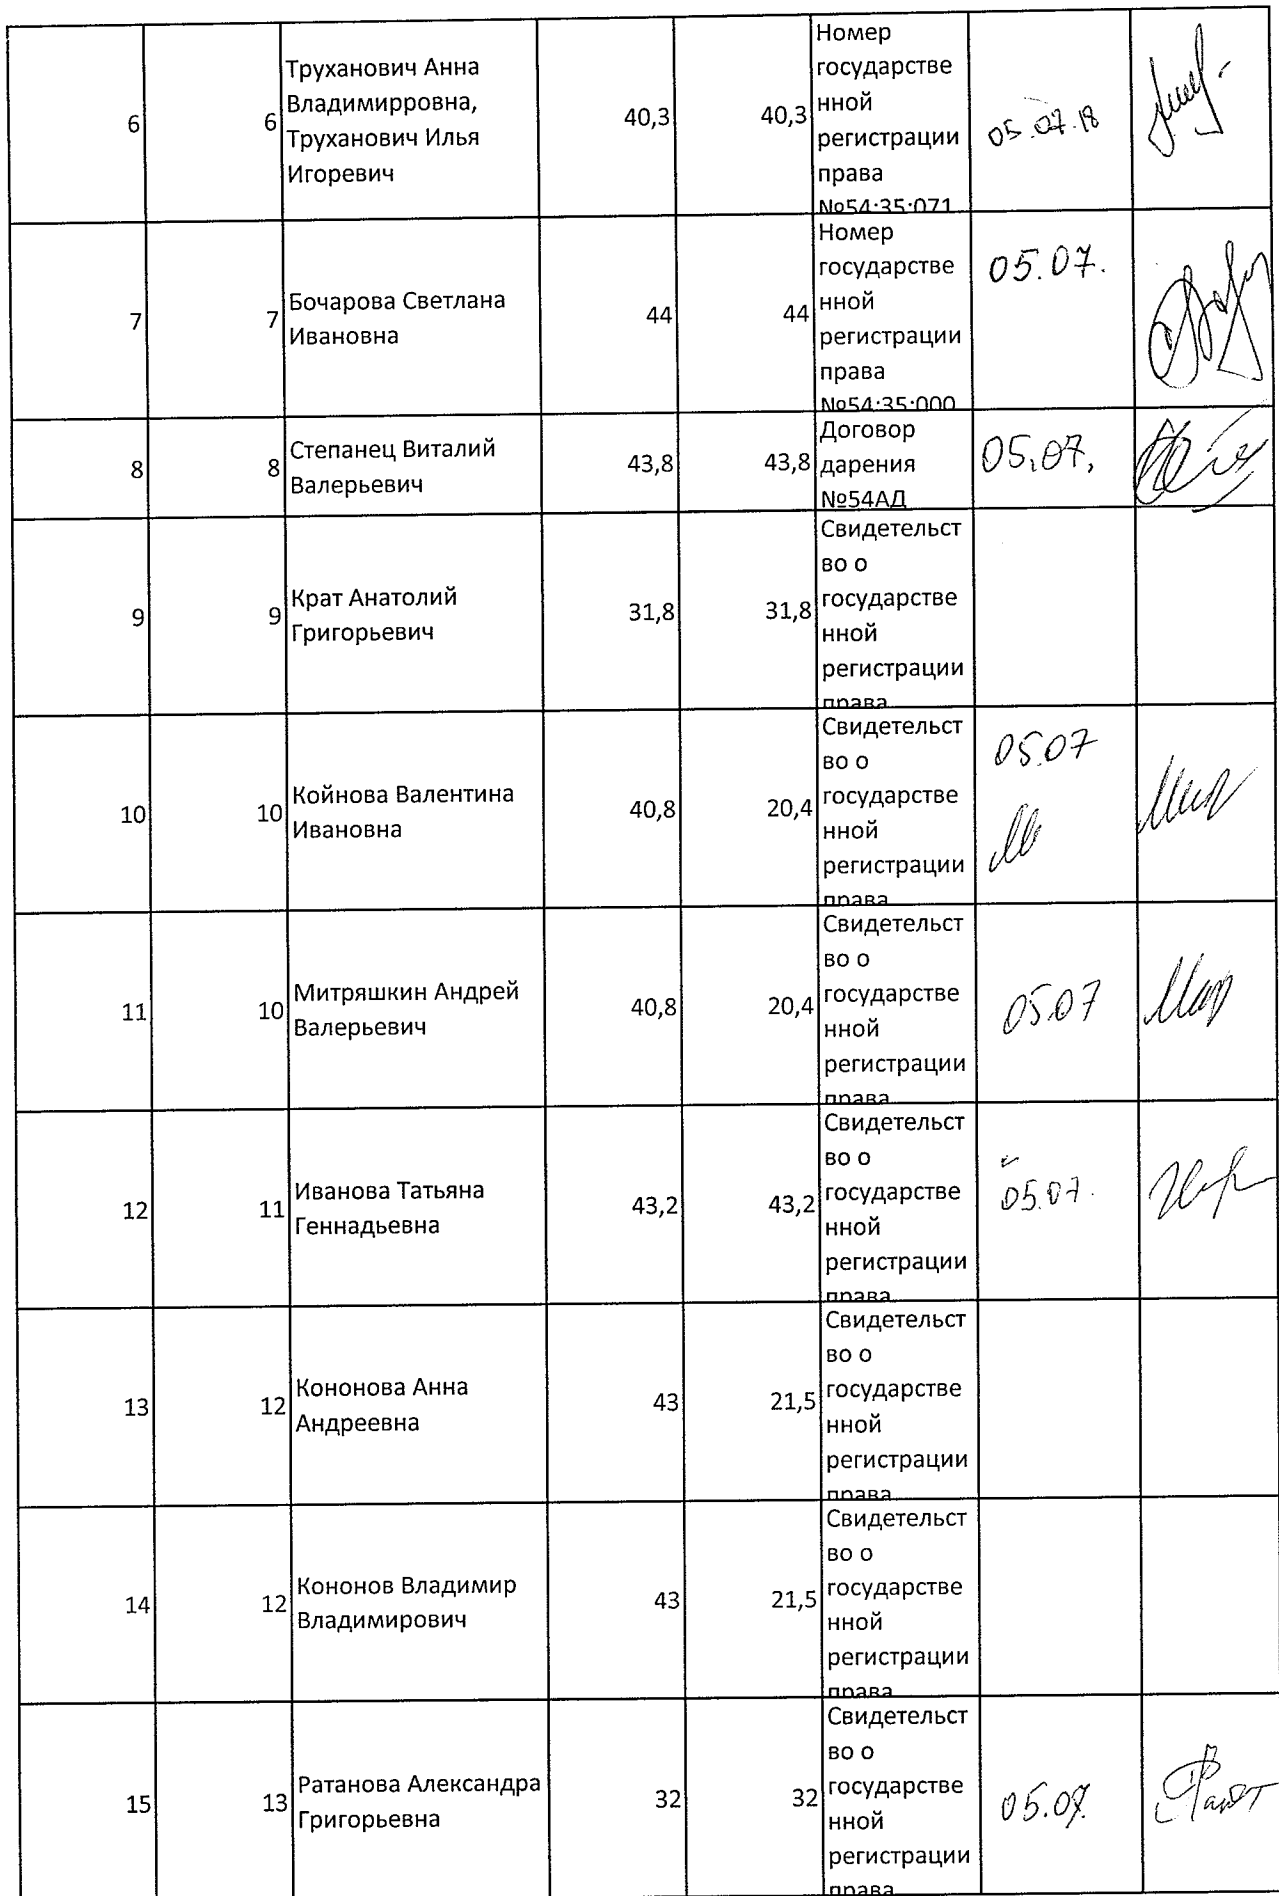 6 6 Труханович Анна Владимирровна, Труханович Илья Игоревич 40,3 40,3 Номер государстве нной регистрации права №54:35:071 05.07.18
7 7 Бочарова Светлана Ивановна 44 44 Номер государстве нной регистрации права №54:35:000 05.07.
8 8 Степанец Виталий Валерьевич 43,8 43,8 Договор дарения №54АД 05.07.
9 9 Крат Анатолий Григорьевич 31,8 31,8 Свидетельст во о государстве нной регистрации права
10 10 Койнова Валентина Ивановна 40,8 20,4 Свидетельст во о государстве нной регистрации права 05.07
11 10 Митряшкин Андрей Валерьевич 40,8 20,4 Свидетельст во о государстве нной регистрации права 05.07
12 11 Иванова Татьяна Геннадьевна 43,2 43,2 Свидетельст во о государстве нной регистрации права 05.07.
13 12 Кононова Анна Андреевна 43 21,5 Свидетельст во о государстве нной регистрации права
14 12 Кононов Владимир Владимирович 43 21,5 Свидетельст во о государстве нной регистрации права
15 13 Ратанова Александра Григорьевна 32 32 Свидетельст во о государстве нной регистрации права 05.07.